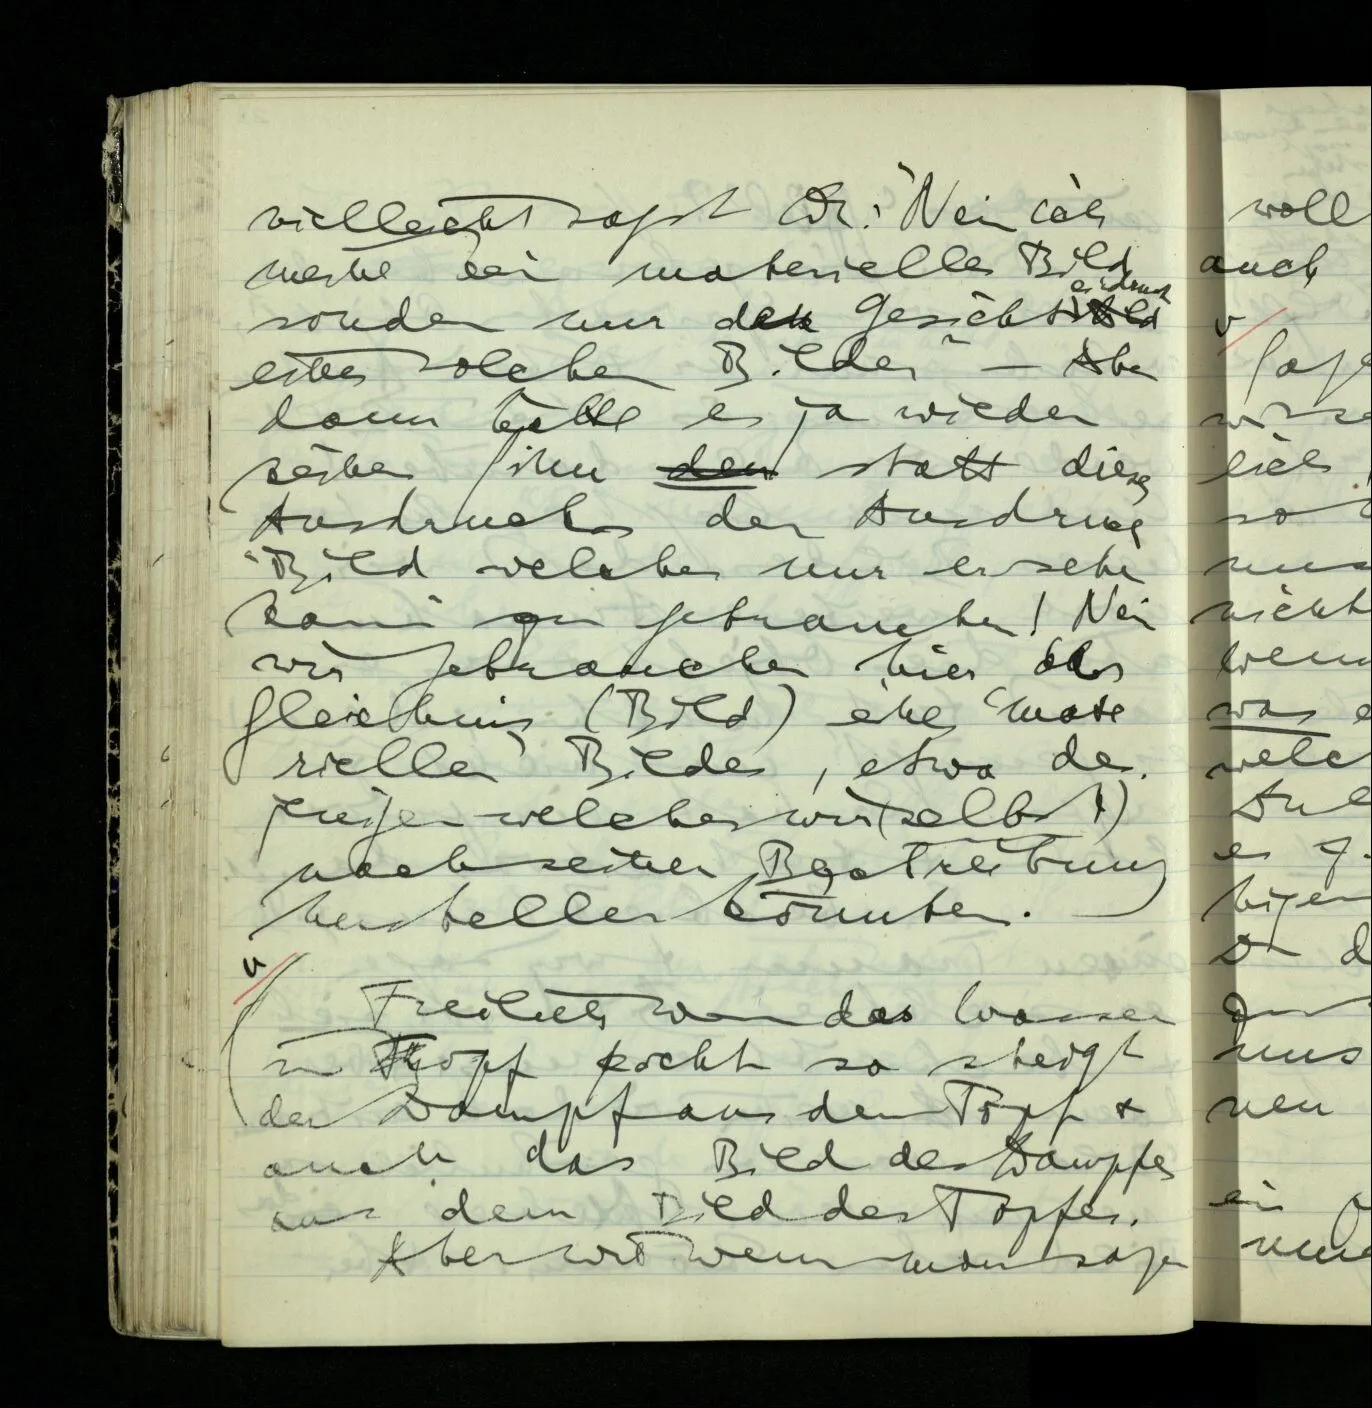 vielleicht sagst Du: „Nein ich
meine kein materielles Bild
sondern nur den Gesichtseindruck
eines solchen Bildes" – Aber
dann hätte es ja wieder
keinen Sinn statt dieses
Ausdrucks der Ausdruck
„Bild welches nur er sehen
kann zu gebrauchen! Nein
wir gebrauchen hier das
Gleichnis (Bild) eines „mate
riellen" Bildes, etwa des
jenigen welches wir (selbst)
nach seiner Beschreibung
herstellen könnten.
Freilich wenn das Wasser
im Topf kocht so steigt
der Dampf aus dem Topf &
auch das Bild des Dampfes
aus dem Bild des Topfes.
Aber wie wenn man sagen
woll
auch
sage
lich
so
nicht
wenn
was
welch